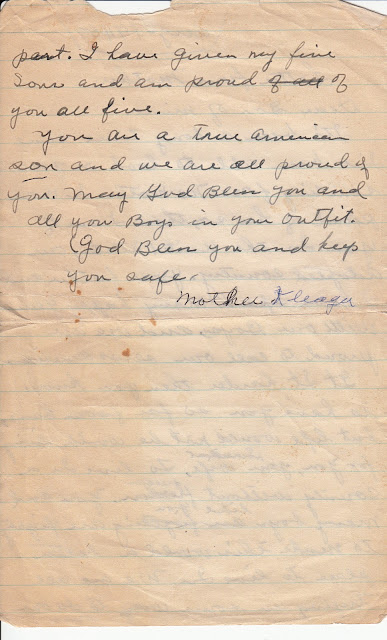 part. I have given my five
Sons and am proud of all of
you all five.
You are a true american
son and we are all proud of
you. May God Bless you and
all you Boys in your outfit.
God Bless you and keep
you safe.
Mother Kleager